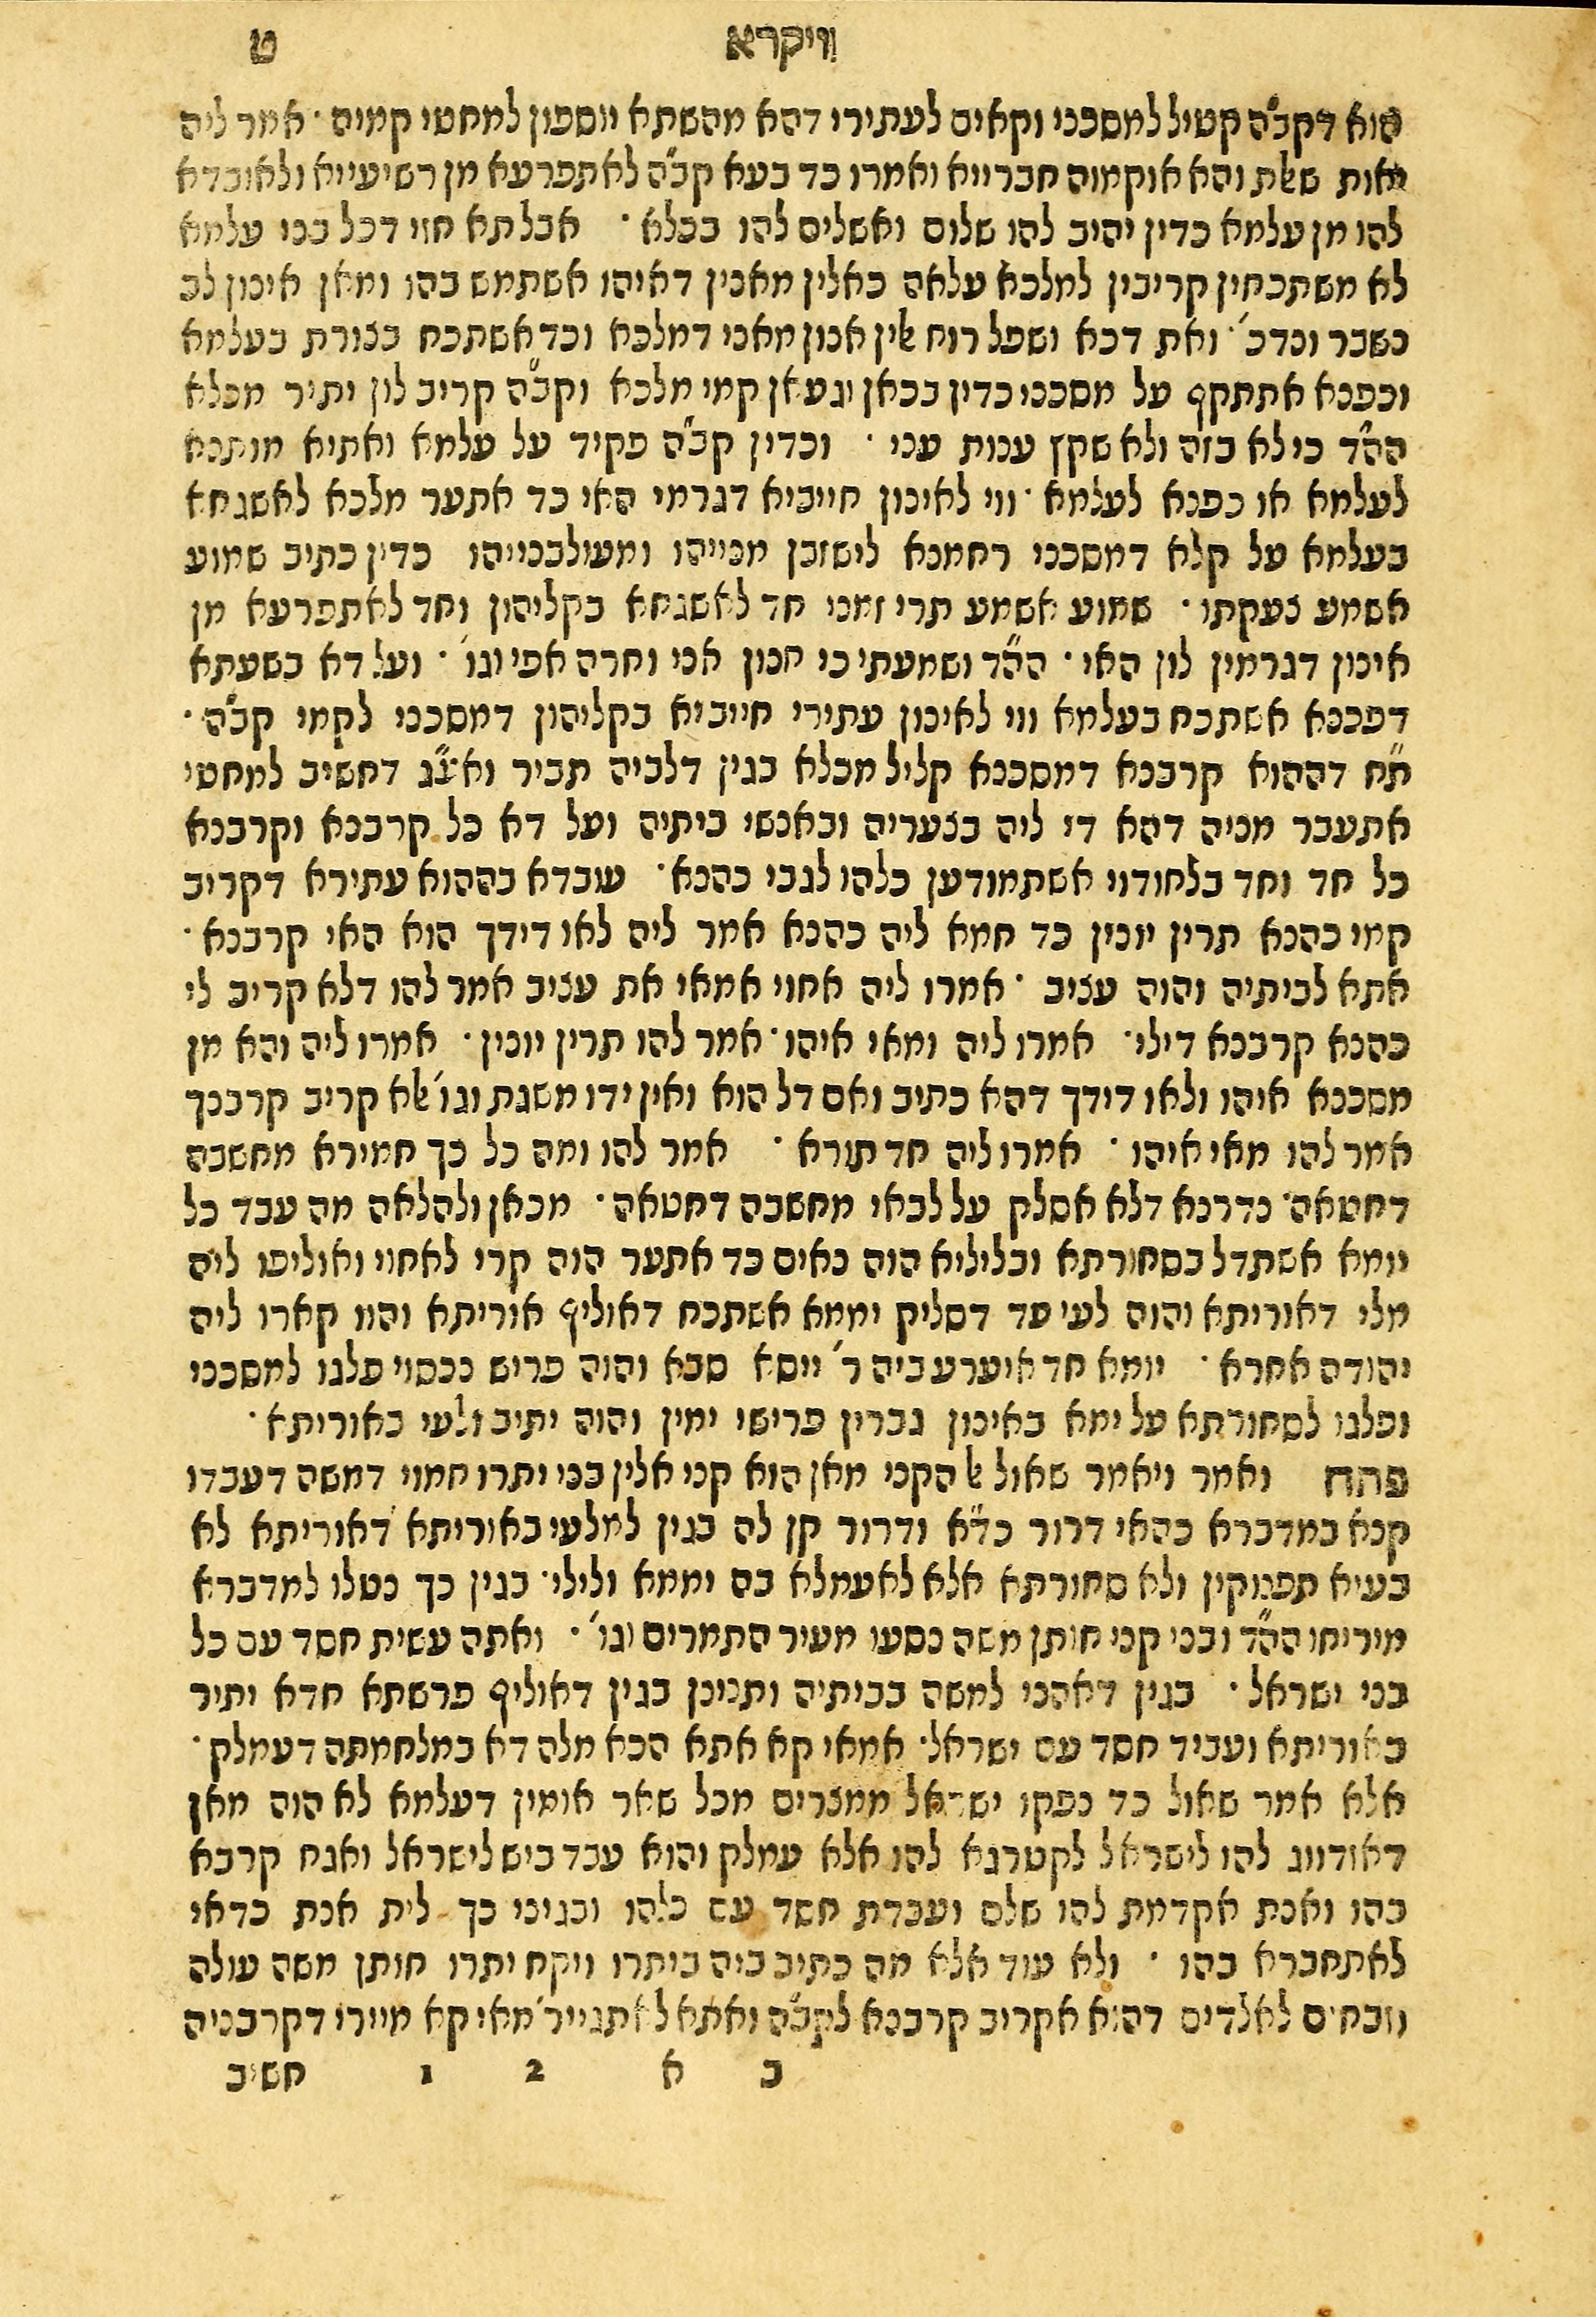 ויקרא ט
הוא דקב"ה קטיל למסכני וקאים לעתירי דהא מהשתא יוספון למחטי קמיה · אמר ליה
יאות שאלת והא אוקמוה חברייא ואמרו כד בעא קב"ה לאתפרעא מן רשיעייא ולאובדא
להו מן עלמא כדין יהיב להו שלום ואשלים להו בכלא · אבל תא חזי דכל בני עלמא
לא משתכחין קריבין למלכא עלאה כאלין מאנין דאיהו אשתמש בהו ומאן אינון לב
נשבר ונדכ' · ואת דכא ושפל רוח אלין אנון מאני דמלכא וכד אשתכח בצורת בעלמא
וכפנא אתתקף על מסכני כדין בכאן וגעאן קמי מלכא וקב"ה קריב לון יתיר מכלא
הה"ד כי לא בזה ולא שקץ ענות עני · וכדין קב"ה פקיד על עלמא ואתיא מותנא
לעלמא או כפנא לעלמא · ווי לאינון חייביא דגרמי האי כד אתער מלכא לאשגחא
בעלמא על קלא דמסכני רחמנא לישזבן מנייהו ומעולבנייהו כדין כתיב שמוע
אשמע צעקתו · שמוע אשמע תרי זמני חד לאשגחא בקליהון וחד לאתפרעא מן
אינון דגרמין לון האי · הה"ד ושמעתי כי חנון אני וחרה אפי וגו' · ועל דא בשעתא
דכפנא אשתכח בעלמא ווי לאינון עתירי חייביא בקליהון דמסכני לקמי קב"ה ·
ת"ח דההוא קרבנא דמסכנא קליל מכלא בגין דלביה תביר ואע"ג דחשיב למחטי
אתעבר מניה דהא די ליה בצעריה ובאנשי ביתיה ועל דא כל קרבנא וקרבנא
כל חד וחד בלחודוי אשתמודען כלהו לגבי כהנא · עובדא בההוא עתירא דקריב
קמי כהנא תרין יונין כד חמא ליה כהנא אמר ליה לאו דידך הוא האי קרבנא ·
אתא לביתיה והוה עציב · אמרו ליה אחוי אמאי את עציב אמר להו דלא קריב לי
כהנא קרבנא דילי · אמרו ליה ומאי איהו · אמר להו תרין יונין · אמרו ליה והא מן
מסכנא איהו ולאו דידך דהא כתיב ואם דל הוא ואין ידו משגת וגו' אלא קריב קרבנך
אמר להו מאי איהו · אמרו ליה חד תורא · אמר להו ומה כל כך חמירא מחשבה
דחטאה · נדרנא דלא אסלק על לבאי מחשבה דחטאה · מכאן ולהלאה מה עבד כל
יומא אשתדל בסחורתא ובליליא הוה נאים כד אתער הוה קרי לאחוי ואוליפו ליה
מלי דאוריתא והוה לעי עד דסליק יממא אשתכח דאוליף אוריתא והוו קארו ליה
יהודה אחרא · יומא חד אוערע ביה ר' ייסא סבא והוה פריש נכסוי פלגו למסכני
ופלגו לסחורתא על ימא באינון גברין פרישי ימין והוה יתיב ולעי באוריתא ·
פתח ואמר ויאמר שאול אל הקני מאן הוא קני אלין בני יתרו חמוי דמשה דעבדו
קנא במדברא כהאי דרור כד"א ודרור קן לה בגין למלעי באוריתא דאוריתא לא
בעיא תפנוקין ולא סחורתא אלא לאעמלא בה יממא ולילי · בגין כך נטלו למדברא
מיריחו הה"ד ובני קני חותן משה נסעו מעיר התמרים וגו' · ואתה עשית חסד עם כל
בני ישראל · בגין דאהני למשה בביתיה ותנינן בגין דאוליף פרשתא חדא יתיר
באוריתא ועביד חסד עם ישראל · אמאי קא אתא הכא מלה דא במלחמתה דעמלק ·
אלא אמר שאול כד נפקו ישראל ממצרים מכל שאר אומין דעלמא לא הוה מאן
דאזדווג להו לישראל לקטרגא להו אלא עמלק והוא עבד ביש לישראל ואגח קרבא
בהו ואנת אקדמת להו שלם ועבדת חסד עם כלהו ובגיני כך לית אנת כדאי
לאתחברא בהו · ולא עוד אלא מה כתיב ביה ביתרו ויקח יתרו חותן משה עולה
וזבחים לאלדים דהוא אקריב קרבנא לקב"ה ואתא לאתגייר' מאי קא מיירי דקרבניה
ב א 2 1 חשיב